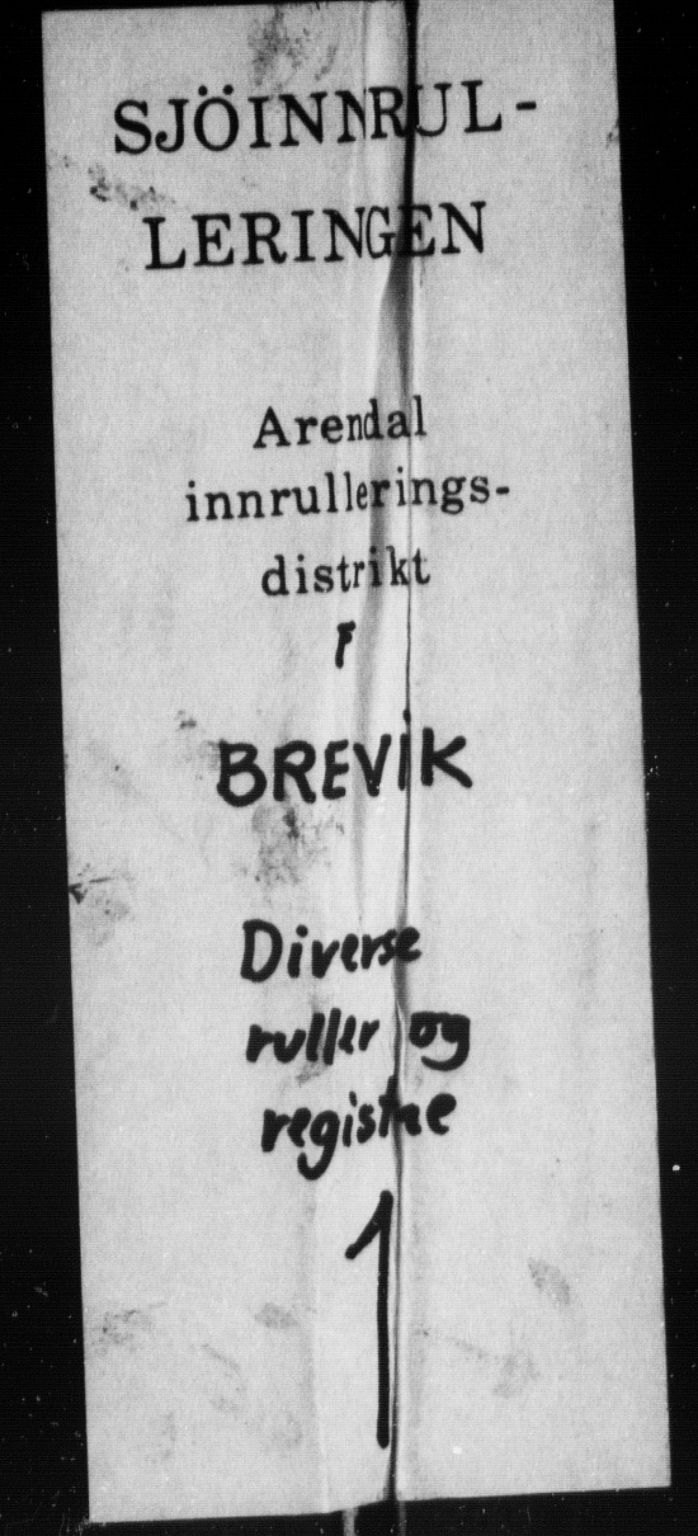 SJÖINNRUL-
LERINGEN
Arendal
innrullerings-
distrikt
F
BREVIK
Diverse
ruller og
registre
1